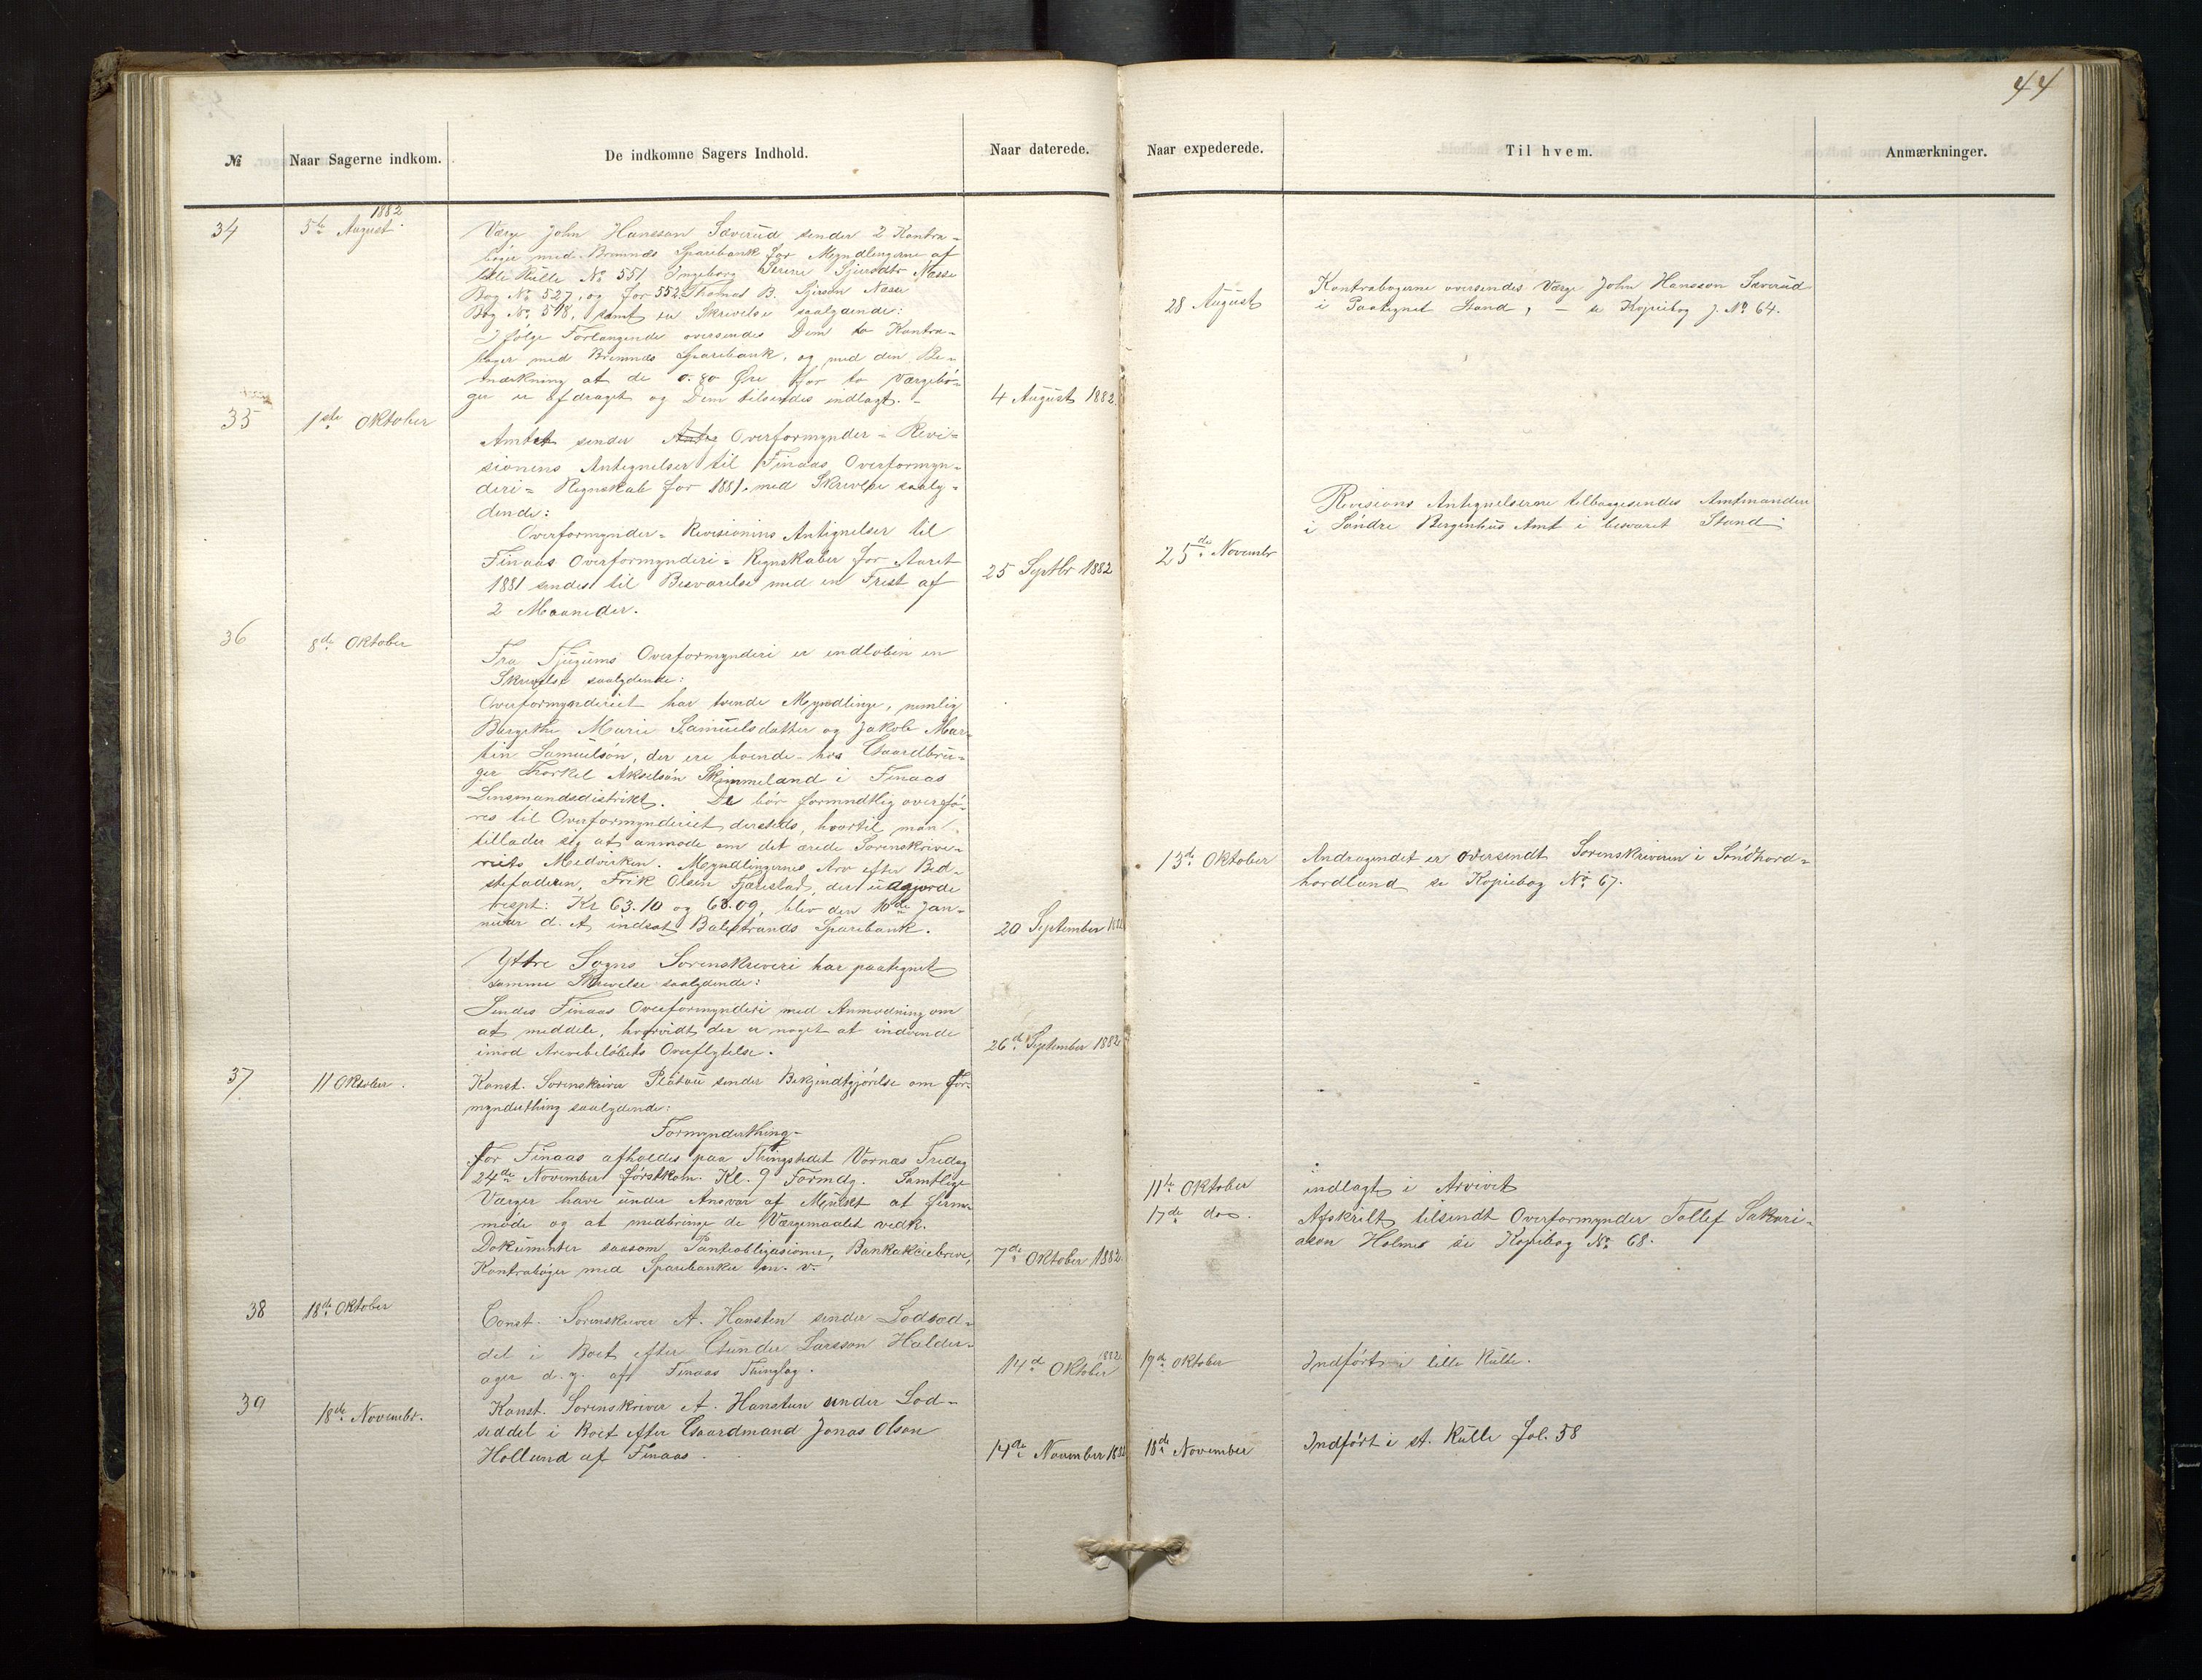 44
№
Naar Sagerne indkom.
De indkomne Sagers Indhold.
Naar daterede.
Naar expederede.
Til hvem.
Anmærkninger.
34
1882
5te August
Værge John Hansson Sæverud sender 2 Kontra-
bøger med Bremnes Sparebank for Myndlingerne af
lille Rulle No 551 Ingeborg Serine Sjursdtr Næsse
Bog No 527, og for 552 Thomas B. Sjurson Næsse
Bog No 518, samt en Skrivelse saalydende:
I følge Forlangende oversendes Dem to Kontra-
bøger med Bremnes Sparebank, og med den Be-
mærkning at de 0.80 Øre for to Værgebø-
ger er afdraget og Dem tilsendes indlagt. -
4 August 1882.
28 August
Kontrabøgerne oversendes Værge John Hansson Sæverud
i Paategnet Stand, - se Kopiebog J. No 64.
35
1ste Oktober
Amtet sender Overformynder = Revi-
sionens Antegnelser til Finaas Overformyn-
deri = Regnskab for 1881, med Skrivelse saaly-
dende:
Overformynder = Revisionens Antegnelser til
Finaas Overformynderi = Regnskaber for Aaret
1881 sendes til Besvarelse med en Frist af
2 Maaneder.
25 Septbr 1882
25de Novembr
Revisions Antegnelserne tilbagesendes Amtmanden
i Søndre Bergenhus Amt i besvaret Stand
36
8de Oktober
Fra Tjugums Overformynderi er indløben en
Skrivelse saalydende:
Overformynderiet har tvende Myndlinge, nemlig
Bergithe Marie Samuelsdatter og Jakob Mar-
tin Samuelsøn, der ere boende hos Gaardbru-
ger Thorkel Akselsøn Skimmeland i Finaas
Lensmandsdistrikt. De bør formentlig overfø-
res til Overformynderiet dersteds, hvortil man
tillader sig at anmode om det ærede Sorenskrive-
riets Medvirken. Myndlingernes Arv efter Bed-
stefaderen, Erik Olsen Fjærestad, der udgjorde
respt: Kr 63.10 og 68.09, blev den 10de Jan-
nuar d. A. indsat Balestrands Sparebank.
20 September 1882
Yttre Sogns Sorenskriveri har paategnet
samme Skrivelse saalydende:
Sendes Finaas Overformynderi med Anmodning om
at meddele, hvorvidt der er noget at indvende
imod Arvebeløbets Overflytelse.
26de September 1882
13de Oktober
Andragendet er oversendt Sorenskriveren i Søndhord-
hordland se Kopiebog No 67.
37
11 Oktober.
Konst. Sorenskriver Platou sender Bekjendtgjørelse om For-
mynderthing saalydende:
Formynderthing
for Finaas afholdes paa Thingstedet Vornæs Fredag
24de November førstkom. Kl. 9 Formdg. Samtlige
Værger have under Ansvar af Mulkt at frem-
møde og at medbringe de Værgemaalet vedk.
Dokumenter saasom Panteobligasioner, Bankaktiebreve,
Kontrabøger med Sparebanker m. v.
7de Oktober 1882.
11te Oktober
indlagt i Arvivet
17de do.
Afskrift tilsendt Overformynder Tollef Sakari-
ason Holme se Kopiebog No 68.
38
18de Oktober
Const. Sorenskriver A. Hansten sender Lodsed-
del i Boet efter Gunder Larsson Halder-
ager d. y. af Finaas Thinglag.
14de Oktober 1882
19de Oktober
Indført i lille Rulle.
39
18de Novembr.
Konst. Sorenskriver A. Hansten sender Lod-
seddel i Boet efter Gaardmand Jonas Olson
Hollund af Finaas.
14de November 1882
18de November
Indført i st. Rulle fol. 58